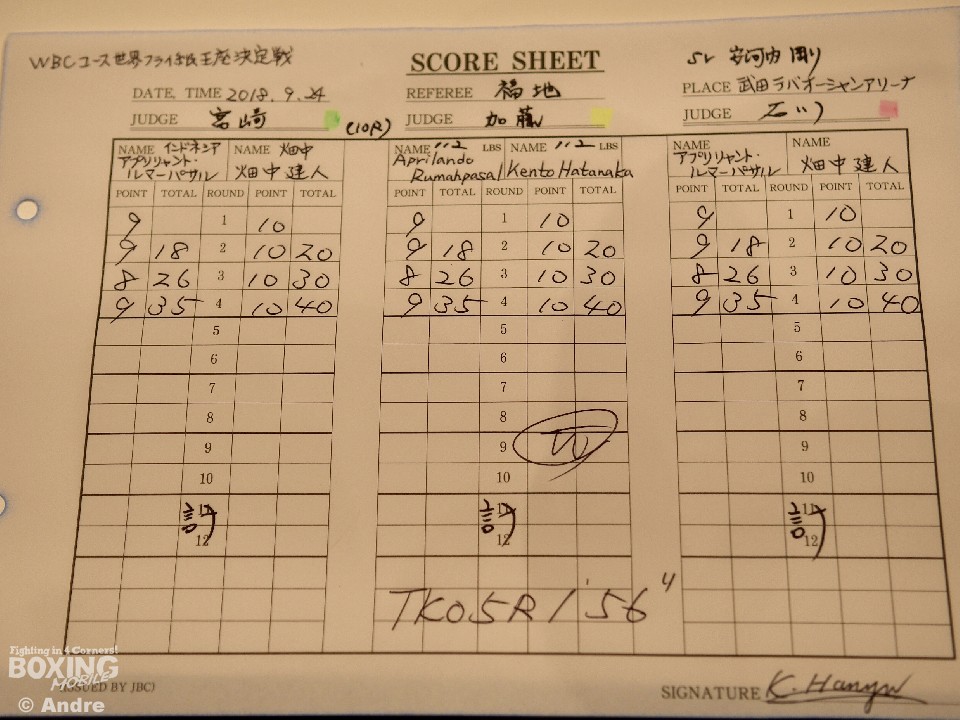 WBCユース世界フライ級王座決定戦
SCORE SHEET
SV 安河内 剛
DATE, TIME 2018.9.24
REFEREE 福地
PLACE 武田テバオーシャンアリーナ
JUDGE 宮崎 (10R)
JUDGE 加藤
JUDGE
NAME インドネシア アプリリャント・ルマーパサル NAME 畑中 畑中 建人
NAME 112 LBS Aprilando Rumahpasal NAME 112 LBS Kento Hatanaka
NAME アプリリャント・ルマーパサル NAME 畑中 建人
POINT TOTAL ROUND POINT TOTAL POINT TOTAL ROUND POINT TOTAL POINT TOTAL ROUND POINT TOTAL
9 1 10 9 1 10 9 1 10
9 18 2 10 20 9 18 2 10 20 9 18 2 10 20
8 26 3 10 30 8 26 3 10 30 8 26 3 10 30
9 35 4 10 40 9 35 4 10 40 9 35 4 10 40
5 5 5
6 6 6
7 7 7
8 8 8
9 9 W 9
10 10 10
計 11 計 11 計 11
12 12 12
TKO5R 1'56"
Fighting in 4 Corners!
BOXING
MOBILE
(ISSUED BY JBC)
SIGNATURE
© Andre